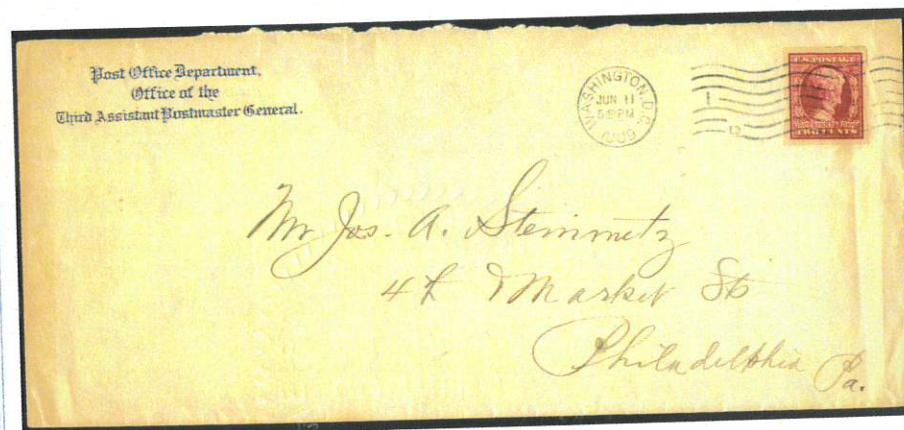 Post Office Department,
Office of the
Third Assistant Postmaster General.
WASHINGTON, D.C.
JUN 11
PM
1909
U.S. POSTAGE
TWO CENTS
Mr Jos. A. Steinmetz
4th Market St
Philadelphia Pa.